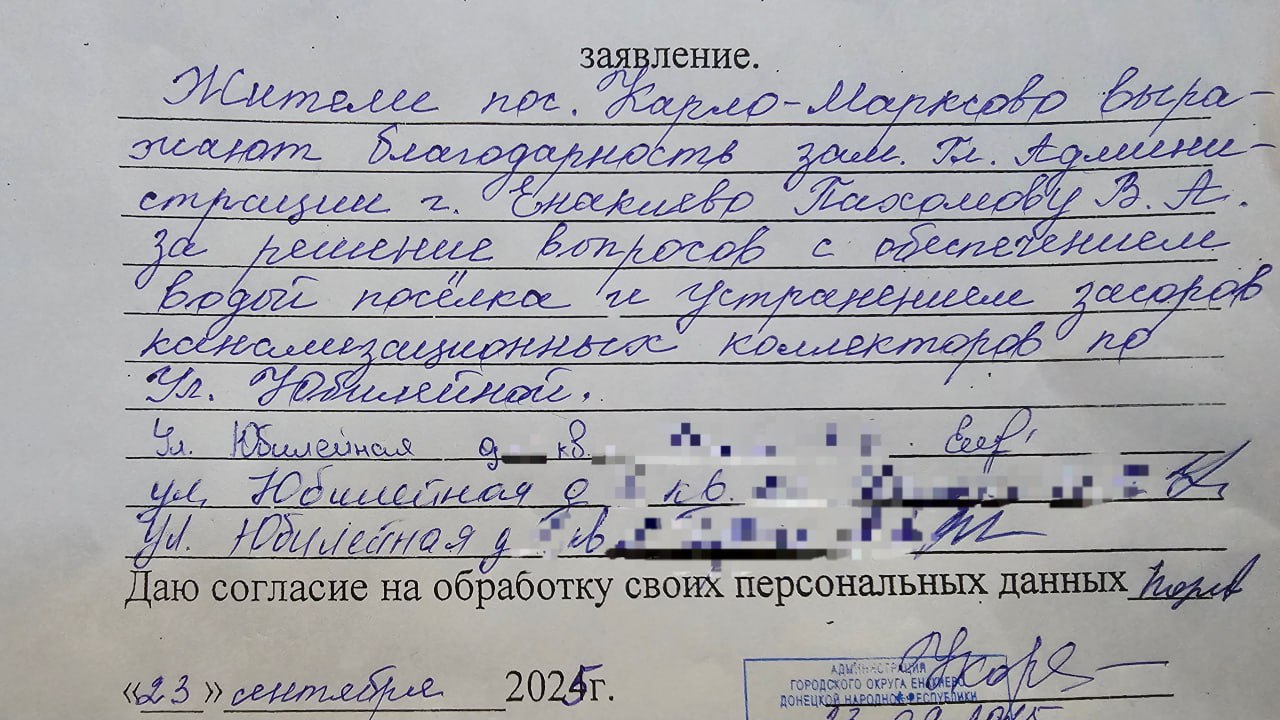 заявление.
Жители пос. Карло-Марксово выра-
жают благодарность зам. Гл. Админи-
страции г. Енакиево Пахомову В. А.
за решение вопросов с обеспечением
водой посёлка и устранением засоров
канализационных коллекторов по
Ул. Юбилейной.
Ул. Юбилейная д кв.
ул. Юбилейная д кв.
Ул. Юбилейная д кв
Даю согласие на обработку своих персональных данных
«23» сентября 2025г.
АДМИНИСТРАЦИЯ
ГОРОДСКОГО ОКРУГА ЕНАКИЕВО
ДОНЕЦКОЙ НАРОДНОЙ РЕСПУБЛИКИ